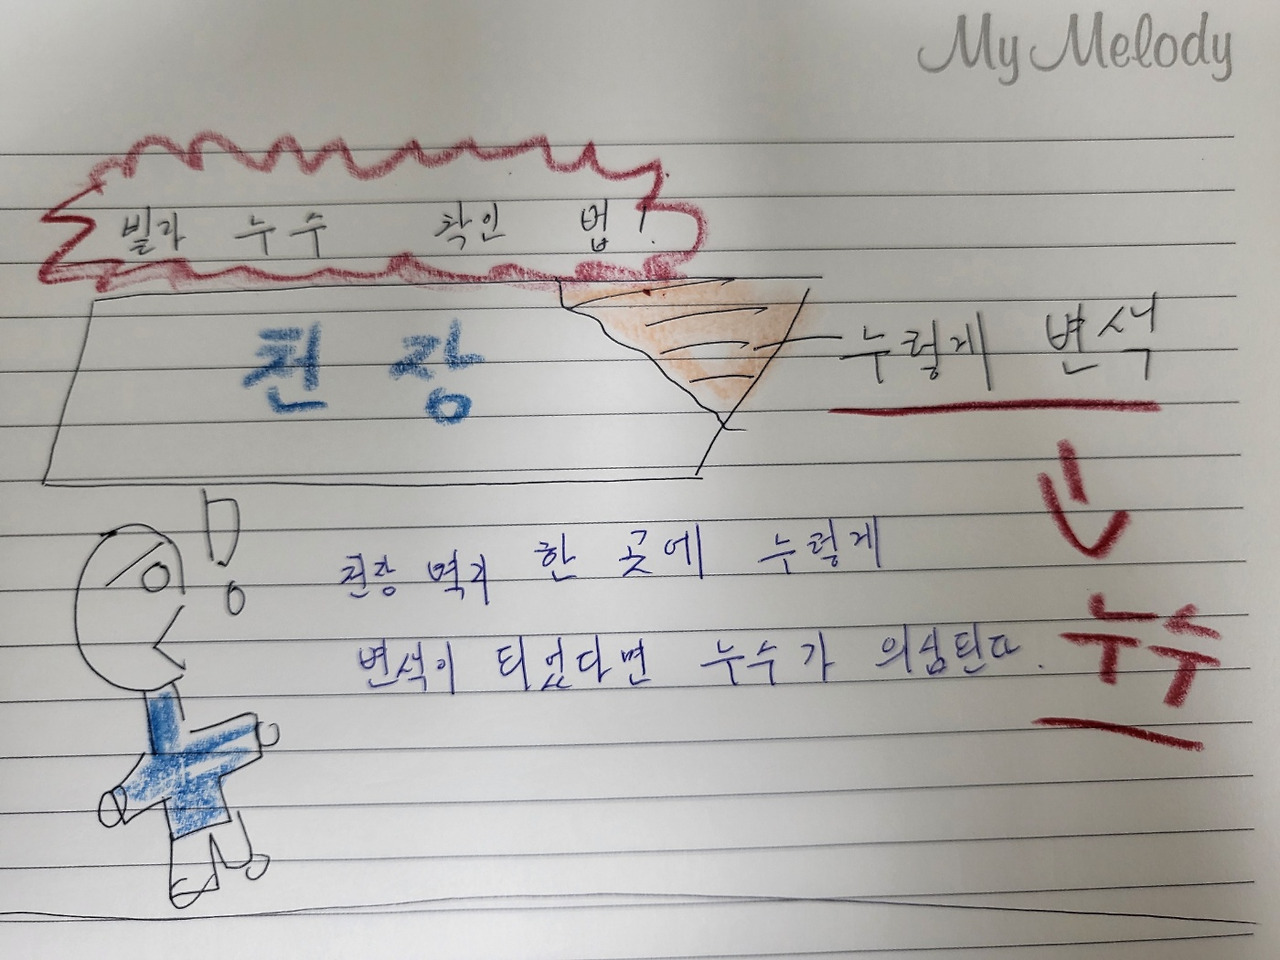 My Melody
빌라 누수 확인 법!
천장
누렇게 변색
천장 벽지 한 곳에 누렇게
변색이 되었다면 누수가 의심된다.
누수